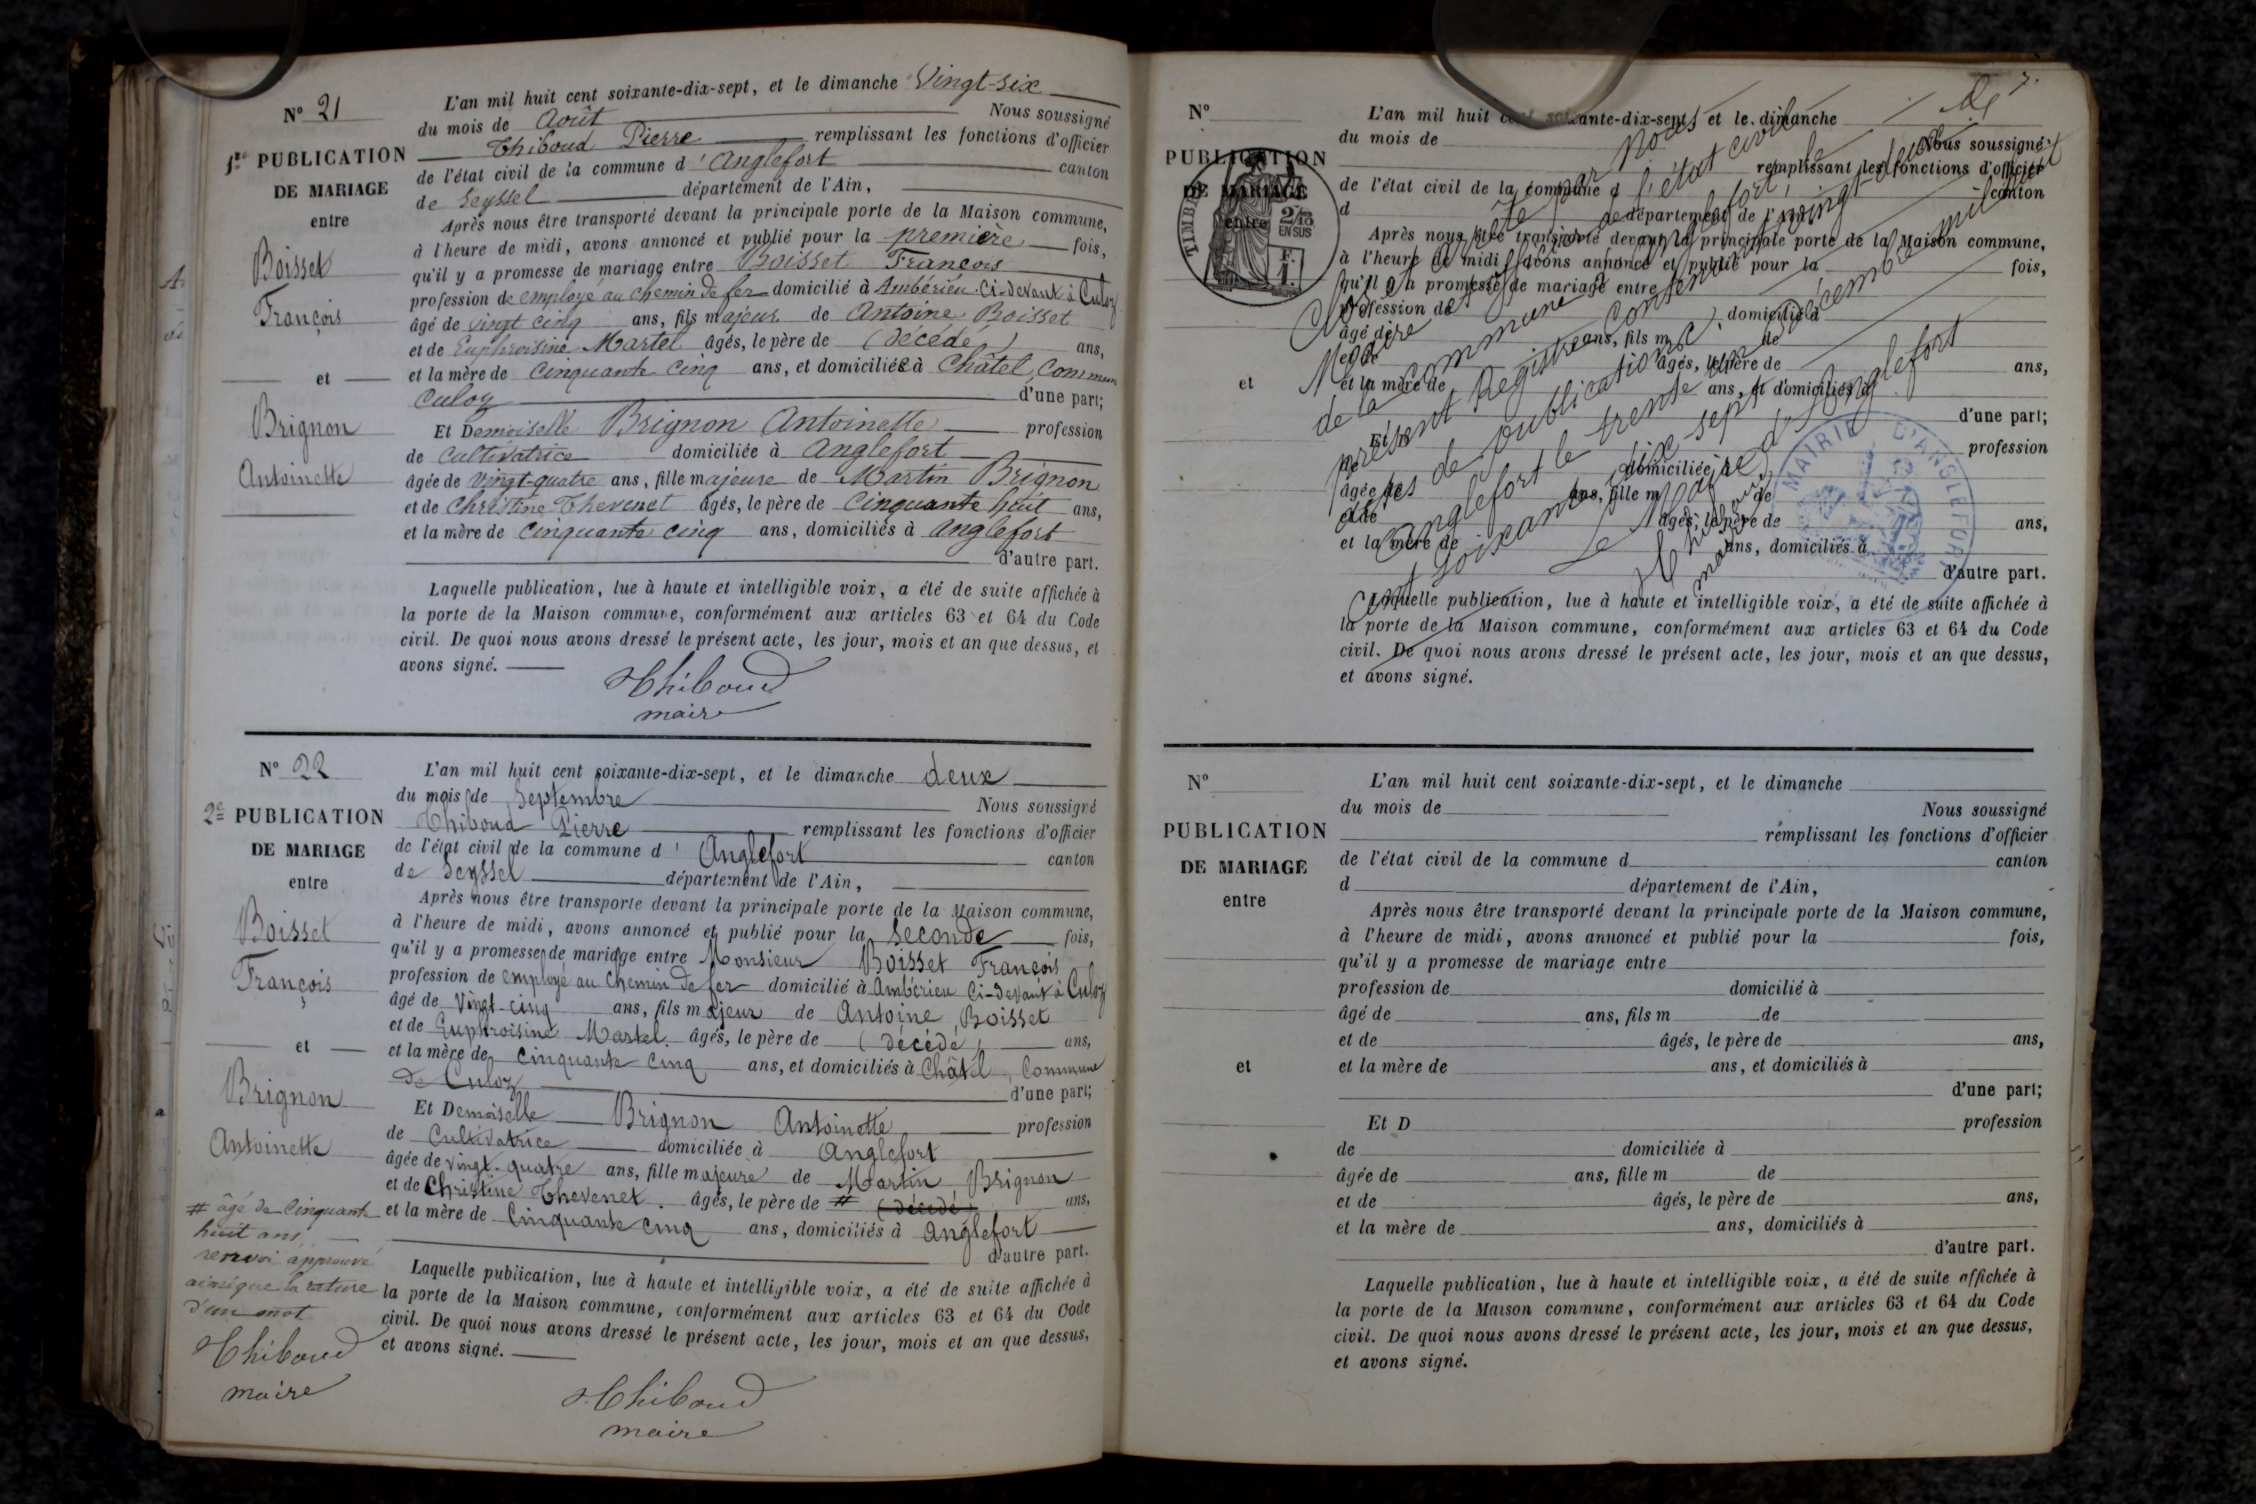 N° 21
1re PUBLICATION
DE MARIAGE
entre
Boisset
François
et
Brignon
Antoinette
L'an mil huit cent soixante-dix-sept, et le dimanche Vingt-six
du mois de Août Nous soussigné
Thiboud Pierre remplissant les fonctions d'officier
de l'état civil de la commune d'Anglefort canton
de Seyssel département de l'Ain,
Après nous être transporté devant la principale porte de la Maison commune,
à l'heure de midi, avons annoncé et publié pour la première fois,
qu'il y a promesse de mariage entre Boisset François
profession de employé au chemin de fer domicilié à Ambérieu ci-devant à Culoz
âgé de vingt cinq ans, fils majeur de Antoine Boisset
et de Euphroisine Martel âgés, le père de (décédé) ans,
et la mère de cinquante cinq ans, et domiciliés à Châtel, Commune
Culoz d'une part;
Et Demoiselle Brignon Antoinette profession
de cultivatrice domiciliée à Anglefort
âgée de vingt-quatre ans, fille majeure de Martin Brignon
et de Christine Thevenet âgés, le père de cinquante huit ans,
et la mère de cinquante cinq ans, domiciliés à Anglefort
d'autre part.
Laquelle publication, lue à haute et intelligible voix, a été de suite affichée à
la porte de la Maison commune, conformément aux articles 63 et 64 du Code
civil. De quoi nous avons dressé le présent acte, les jour, mois et an que dessus, et
avons signé.
Thiboud
maire
N° 22
2e PUBLICATION
DE MARIAGE
entre
Boisset
François
et
Brignon
Antoinette
# âgé de cinquante
huit ans,
renvoi approuvé
ainsi que la rature
d'un mot
Thiboud
maire
L'an mil huit cent soixante-dix-sept, et le dimanche deux
du mois de Septembre Nous soussigné
Thiboud Pierre remplissant les fonctions d'officier
de l'état civil de la commune d'Anglefort canton
de Seyssel département de l'Ain,
Après nous être transporté devant la principale porte de la Maison commune,
à l'heure de midi, avons annoncé et publié pour la seconde fois,
qu'il y a promesse de mariage entre Monsieur Boisset François
profession de employé au chemin de fer domicilié à Ambérieu ci-devant à Culoz
âgé de vingt-cinq ans, fils majeur de Antoine Boisset
et de Euphroisine Martel âgés, le père de (décédé) ans,
et la mère de cinquante cinq ans, et domiciliés à Châtel, Commune
de Culoz d'une part;
Et Demoiselle Brignon Antoinette profession
de Cultivatrice domiciliée à Anglefort
âgée de vingt-quatre ans, fille majeure de Martin Brignon
et de Christine Thevenet âgés, le père de # (décédé) ans,
et la mère de cinquante cinq ans, domiciliés à Anglefort
d'autre part.
Laquelle publication, lue à haute et intelligible voix, a été de suite affichée à
la porte de la Maison commune, conformément aux articles 63 et 64 du Code
civil. De quoi nous avons dressé le présent acte, les jour, mois et an que dessus,
et avons signé.
Thiboud
maire
7.
N°
PUBLICATION
DE MARIAGE
entre
et
TIMBRE
2/10
EN SUS
F.
1.
L'an mil huit cent soixante-dix-sept, et le dimanche
du mois de Nous soussigné
remplissant les fonctions d'officier
de l'état civil de la commune d canton
d département de l'Ain,
Après nous être transporté devant la principale porte de la Maison commune,
à l'heure de midi, avons annoncé et publié pour la fois,
qu'il y a promesse de mariage entre
profession de domicilié à
âgé de ans, fils m de
et de âgés, le père de ans,
et la mère de ans, et domiciliés à
d'une part;
Et D profession
de domiciliée à
âgée de ans, fille m de
et de âgés, le père de ans,
et la mère de ans, domiciliés à
d'autre part.
Laquelle publication, lue à haute et intelligible voix, a été de suite affichée à
la porte de la Maison commune, conformément aux articles 63 et 64 du Code
civil. De quoi nous avons dressé le présent acte, les jour, mois et an que dessus,
et avons signé.
Clos et arrêté par Nous
Maire de l'état civil
de la commune d'Anglefort, le
présent Registre contenant vingt-deux
actes de publications
Anglefort le trente un décembre mil huit
cent soixante dix sept
Le Maire d'Anglefort
Thiboud
maire
MAIRIE D'ANGLEFORT
N°
PUBLICATION
DE MARIAGE
entre
et
L'an mil huit cent soixante-dix-sept, et le dimanche
du mois de Nous soussigné
remplissant les fonctions d'officier
de l'état civil de la commune d canton
d département de l'Ain,
Après nous être transporté devant la principale porte de la Maison commune,
à l'heure de midi, avons annoncé et publié pour la fois,
qu'il y a promesse de mariage entre
profession de domicilié à
âgé de ans, fils m de
et de âgés, le père de ans,
et la mère de ans, et domiciliés à
d'une part;
Et D profession
de domiciliée à
âgée de ans, fille m de
et de âgés, le père de ans,
et la mère de ans, domiciliés à
d'autre part.
Laquelle publication, lue à haute et intelligible voix, a été de suite affichée à
la porte de la Maison commune, conformément aux articles 63 et 64 du Code
civil. De quoi nous avons dressé le présent acte, les jour, mois et an que dessus,
et avons signé.